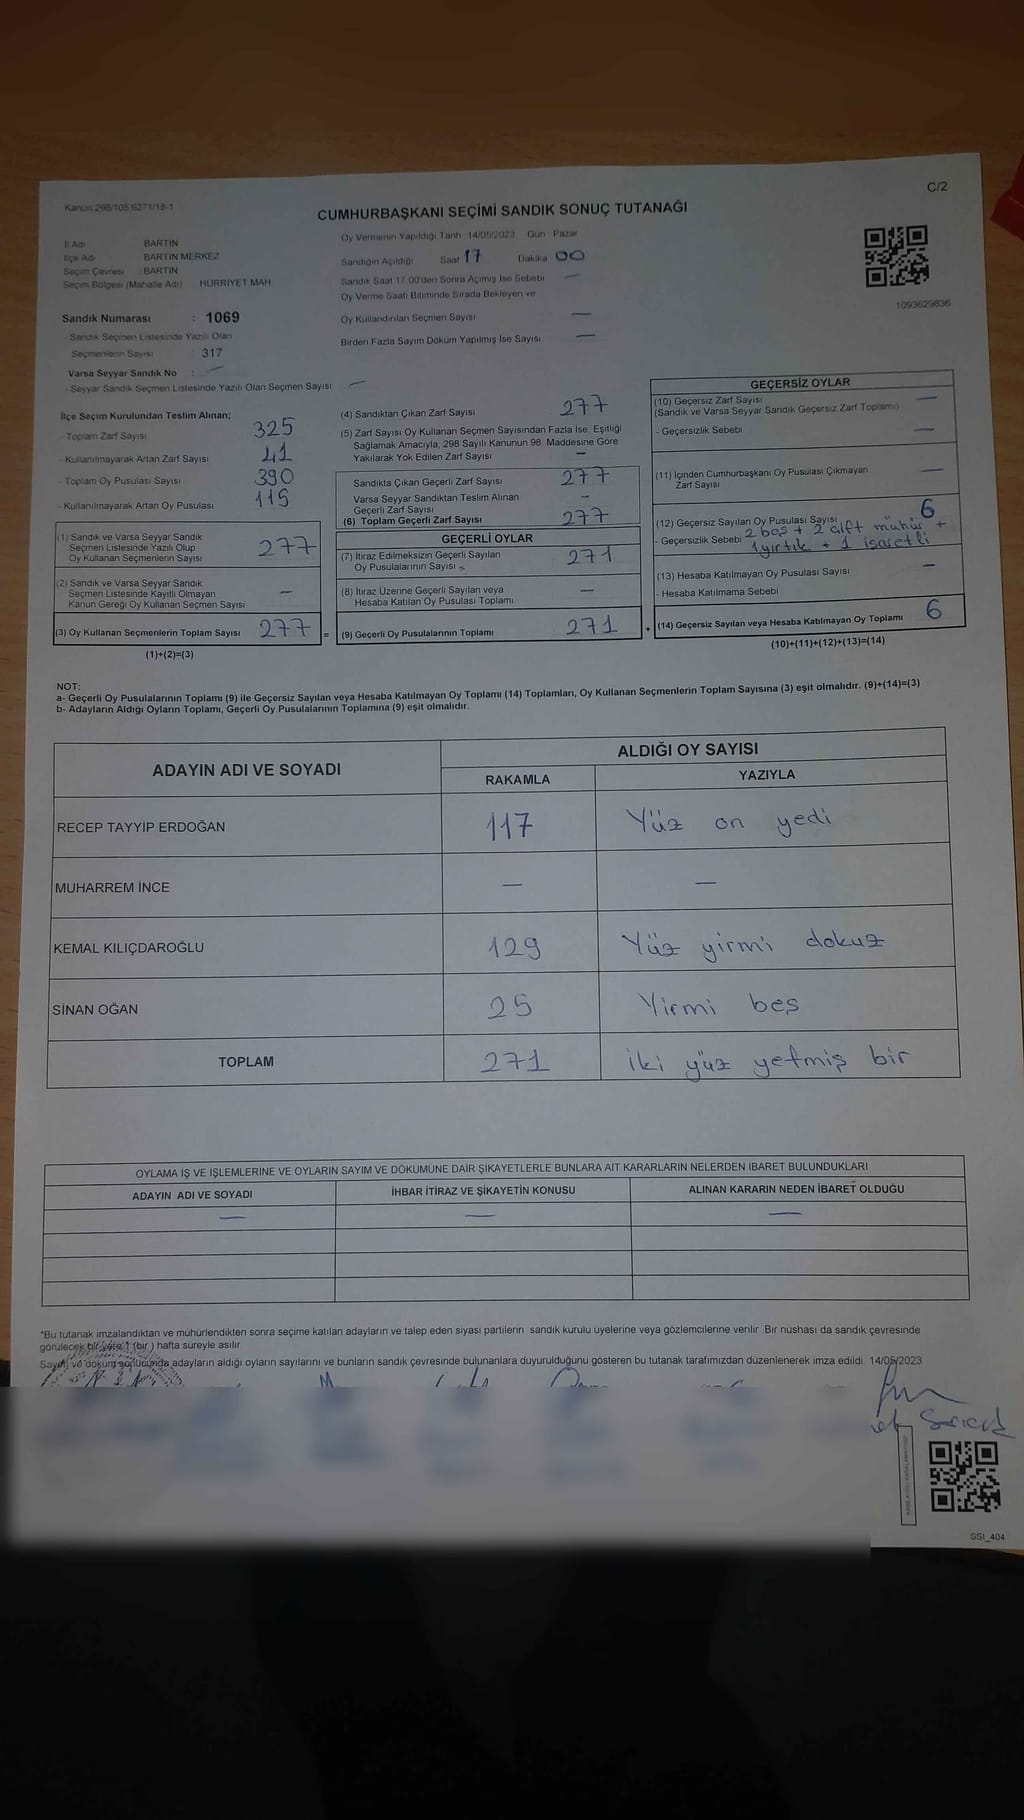 C/2
Kanun 298/105,6271/18-1
CUMHURBAŞKANI SEÇİMİ SANDIK SONUÇ TUTANAĞI
İl Adı BARTIN
İlçe Adı BARTIN MERKEZ
Seçim Çevresi : BARTIN
Seçim Bölgesi (Mahalle Adı) HÜRRİYET MAH
Oy Vermenin Yapıldığı Tarih 14/05/2023 Gün : Pazar
Sandığın Açıldığı Saat 17 Dakika 00
Sandık Saat 17.00'den Sonra Açılmış İse Sebebi —
Oy Verme Saati Bitiminde Sırada Bekleyen ve
Oy Kullandırılan Seçmen Sayısı —
Birden Fazla Sayım Döküm Yapılmış İse Sayısı —
1093629836
Sandık Numarası : 1069
- Sandık Seçmen Listesinde Yazılı Olan
Seçmenlerin Sayısı : 317
Varsa Seyyar Sandık No : —
- Seyyar Sandık Seçmen Listesinde Yazılı Olan Seçmen Sayısı: —
İlçe Seçim Kurulundan Teslim Alınan;
- Toplam Zarf Sayısı 325
- Kullanılmayarak Artan Zarf Sayısı 41
- Toplam Oy Pusulası Sayısı 390
- Kullanılmayarak Artan Oy Pusulası 115
(1) Sandık ve Varsa Seyyar Sandık
Seçmen Listesinde Yazılı Olup
Oy Kullanan Seçmenlerin Sayısı 277
(2) Sandık ve Varsa Seyyar Sandık
Seçmen Listesinde Kayıtlı Olmayan
Kanun Gereği Oy Kullanan Seçmen Sayısı —
(3) Oy Kullanan Seçmenlerin Toplam Sayısı 277 =
(1)+(2)=(3)
(4) Sandıktan Çıkan Zarf Sayısı 277
(5) Zarf Sayısı Oy Kullanan Seçmen Sayısından Fazla İse, Eşitliği
Sağlamak Amacıyla, 298 Sayılı Kanunun 98. Maddesine Göre
Yakılarak Yok Edilen Zarf Sayısı —
Sandıkta Çıkan Geçerli Zarf Sayısı 277
Varsa Seyyar Sandıktan Teslim Alınan
Geçerli Zarf Sayısı —
(6) Toplam Geçerli Zarf Sayısı 277
GEÇERLİ OYLAR
(7) İtiraz Edilmeksizin Geçerli Sayılan
Oy Pusulalarının Sayısı 271
(8) İtiraz Üzerine Geçerli Sayılan veya
Hesaba Katılan Oy Pusulası Toplamı —
(9) Geçerli Oy Pusulalarının Toplamı 271 +
GEÇERSİZ OYLAR
(10) Geçersiz Zarf Sayısı —
(Sandık ve Varsa Seyyar Sandık Geçersiz Zarf Toplamı)
- Geçersizlik Sebebi —
(11) İçinden Cumhurbaşkanı Oy Pusulası Çıkmayan —
Zarf Sayısı
(12) Geçersiz Sayılan Oy Pusulası Sayısı 6
- Geçersizlik Sebebi 2 boş + 2 çift mühür +
1 yırtık + 1 işaretli
(13) Hesaba Katılmayan Oy Pusulası Sayısı —
- Hesaba Katılmama Sebebi
(14) Geçersiz Sayılan veya Hesaba Katılmayan Oy Toplamı 6
(10)+(11)+(12)+(13)=(14)
NOT:
a- Geçerli Oy Pusulalarının Toplamı (9) ile Geçersiz Sayılan veya Hesaba Katılmayan Oy Toplamı (14) Toplamları, Oy Kullanan Seçmenlerin Toplam Sayısına (3) eşit olmalıdır. (9)+(14)=(3)
b- Adayların Aldığı Oyların Toplamı, Geçerli Oy Pusulalarının Toplamına (9) eşit olmalıdır.
ADAYIN ADI VE SOYADI ALDIĞI OY SAYISI
RAKAMLA YAZIYLA
RECEP TAYYİP ERDOĞAN 117 Yüz on yedi
MUHARREM İNCE — —
KEMAL KILIÇDAROĞLU 129 Yüz yirmi dokuz
SİNAN OĞAN 25 Yirmi beş
TOPLAM 271 iki yüz yetmiş bir
OYLAMA İŞ VE İŞLEMLERİNE VE OYLARIN SAYIM VE DÖKÜMÜNE DAİR ŞİKAYETLERLE BUNLARA AİT KARARLARIN NELERDEN İBARET BULUNDUKLARI
ADAYIN ADI VE SOYADI İHBAR İTİRAZ VE ŞİKAYETİN KONUSU ALINAN KARARIN NEDEN İBARET OLDUĞU
— — —
*Bu tutanak imzalandıktan ve mühürlendikten sonra seçime katılan adayların ve talep eden siyasi partilerin sandık kurulu üyelerine veya gözlemcilerine verilir. Bir nüshası da sandık çevresinde
görülecek bir yere 1 (bir) hafta süreyle asılır.
Sayım ve döküm sonucunda adayların aldığı oyların sayılarını ve bunların sandık çevresinde bulunanlara duyurulduğunu gösteren bu tutanak tarafımızdan düzenlenerek imza edildi. 14/05/2023
SSI_404